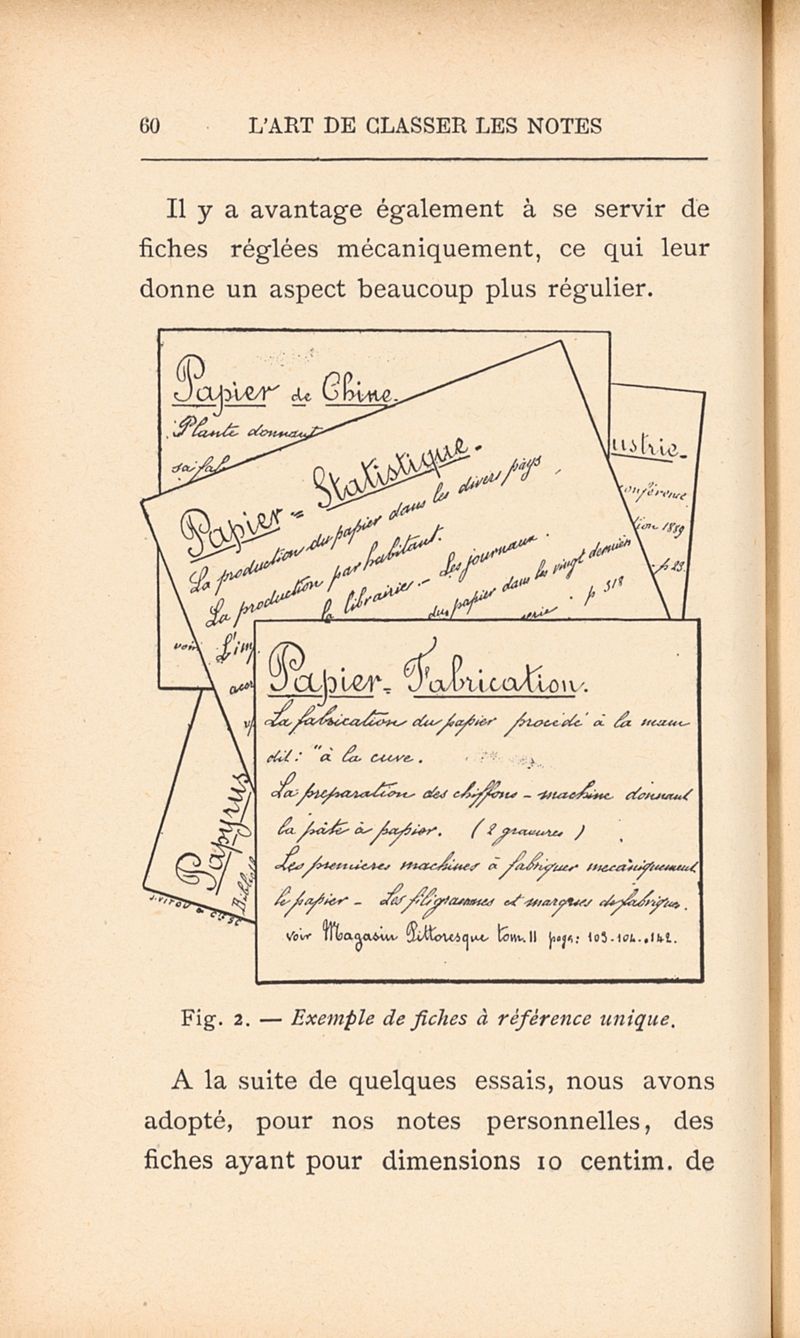 60 L'ART DE CLASSER LES NOTES
Il y a avantage également à se servir de
fiches réglées mécaniquement, ce qui leur
donne un aspect beaucoup plus régulier.
Papier de Chine.
Plante donnant
ustrie.
onférence
tion 1889
p 23.
Papier = Statistique.
La production du papier dans les divers pays
La production par habitant.
la librairie - Les journaux.
du papier dans les vingt dernièr
p 318
voir
L'im
Papyrus
Bibliot
Papier = Fabrication.
La fabrication du papier procédé à la main
dit : "à la cuve.
La préparation des chiffons - machine donnant
la pâte à papier. (2 gravures)
Les premières machines à fabriquer mécaniquement
le papier - Les filigrammes et marques de fabrique.
voir Magasin Pittoresque tom. II page: 103-104-142.
Fig. 2. — Exemple de fiches à référence unique.
A la suite de quelques essais, nous avons
adopté, pour nos notes personnelles, des
fiches ayant pour dimensions 10 centim. de